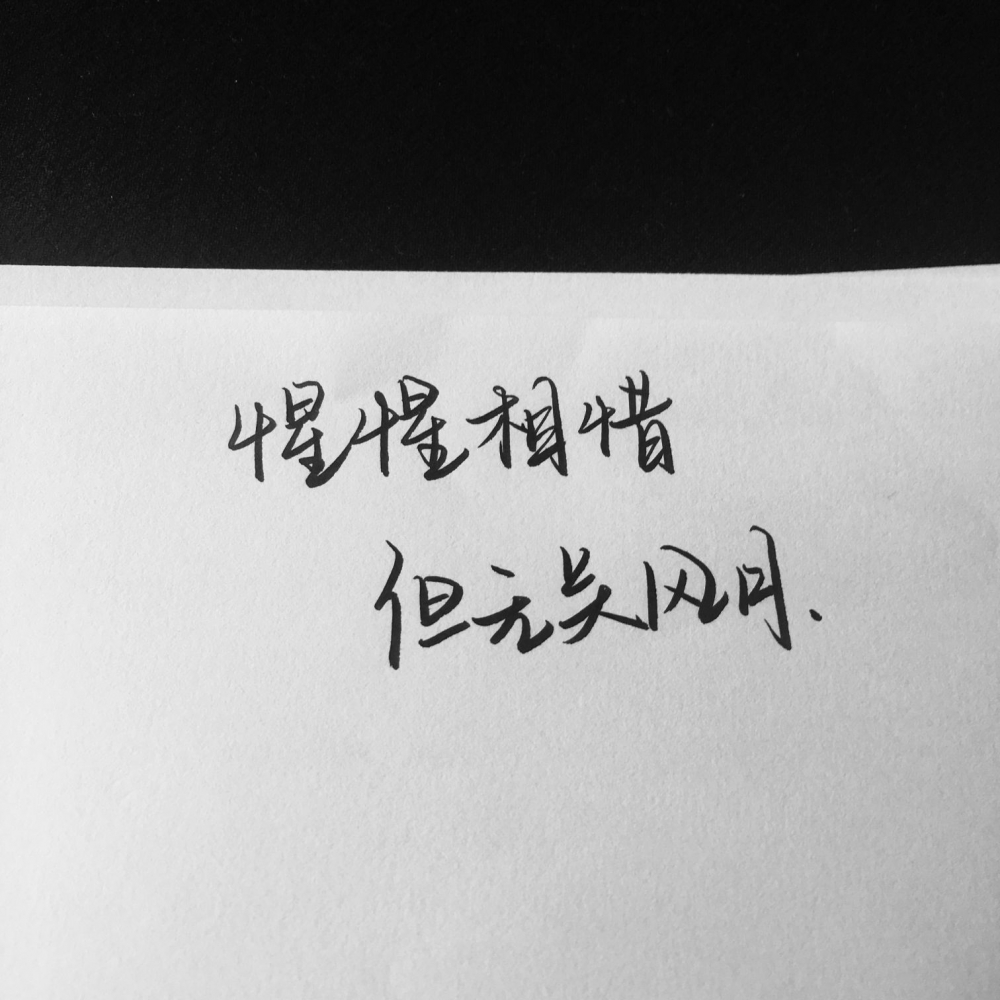 惺惺相惜
但无关风月.